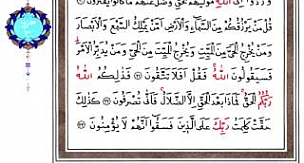 وَرُدُّوا إِلَى اللَّهِ مَوْلَاهُمُ الْحَقِّ وَضَلَّ عَنْهُمْ مَا كَانُوا يَفْتَرُونَ
قُلْ مَنْ يَرْزُقُكُمْ مِنَ السَّمَاءِ وَالْأَرْضِ أَمَّنْ يَمْلِكُ السَّمْعَ وَالْأَبْصَارَ
وَمَنْ يُخْرِجُ الْحَيَّ مِنَ الْمَيِّتِ وَيُخْرِجُ الْمَيِّتَ مِنَ الْحَيِّ وَمَنْ يُدَبِّرُ الْأَمْرَ
فَسَيَقُولُونَ اللَّهُ فَقُلْ أَفَلَا تَتَّقُونَ فَذَلِكُمُ اللَّهُ
رَبُّكُمُ الْحَقُّ فَمَاذَا بَعْدَ الْحَقِّ إِلَّا الضَّلَالُ فَأَنَّى تُصْرَفُونَ كَذَلِكَ
حَقَّتْ كَلِمَتُ رَبِّكَ عَلَى الَّذِينَ فَسَقُوا أَنَّهُمْ لَا يُؤْمِنُونَ